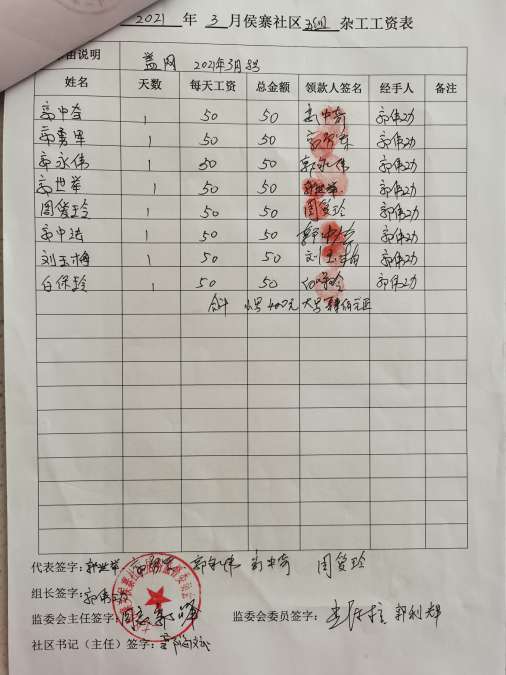 2021 年 3 月侯寨社区 五组 杂工工资表
由说明 盖网 2021年3月8号
姓名 天数 每天工资 总金额 领款人签名 经手人 备注
郭中奇 1 50 50 郭中奇 郭伟功
郭勇军 1 50 50 郭伟功
郭永伟 1 50 50 郭永伟 郭伟功
郭世举 1 50 50 郭世举 郭伟功
周爱玲 1 50 50 周爱玲 郭伟功
郭中法 1 50 50 郭中法 郭伟功
刘玉梅 1 50 50 刘玉梅 郭伟功
白保玲 1 50 50 白保玲 郭伟功
合计 小写400元 大写肆佰元正
代表签字: 郭世举 郭永伟 郭中奇 周爱玲
组长签字: 郭伟功
监委会主任签字: 监委会委员签字: 郭利辉
社区书记(主任)签字: